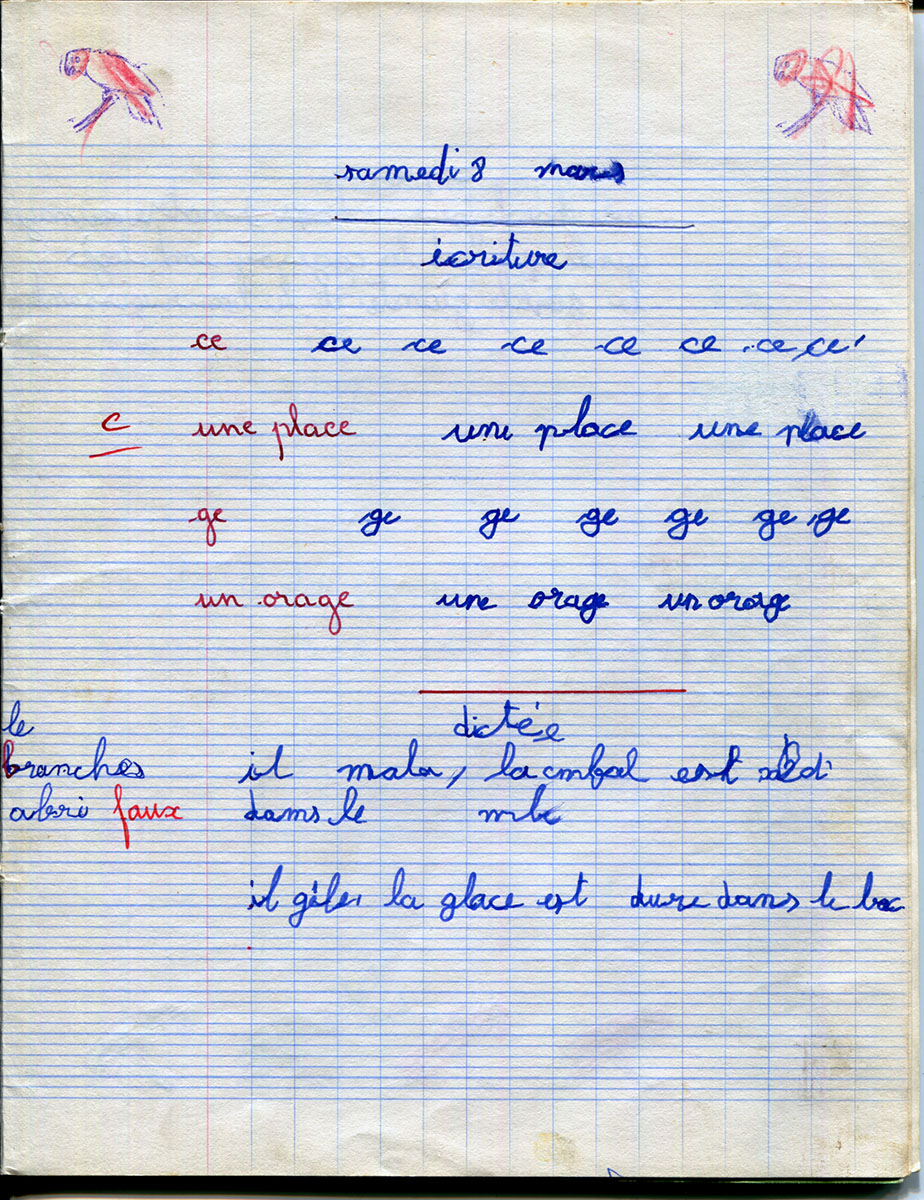 samedi 8 mars
écriture
ce ce ce ce ce ce ce ce
c une place une place une place
ge ge ge ge ge ge ge
un orage une orage un orage
dictée
le
branches
abri faux
il mala, la cmbal est
dans le
il gèle, la glace est dure dans le bac